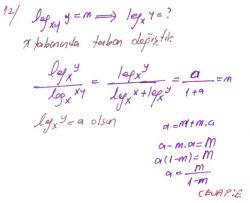 12/ log_{xy} y = m ⟹ log_x y = ?
x tabanında taban değiştir.
\frac{log_x y}{log_x xy} = \frac{log_x y}{log_x x + log_x y} = \frac{a}{1+a} = m
log_x y = a olsun
a = m + m.a
a - m.a = m
a(1-m) = m
a = \frac{m}{1-m}
CEVAP: E